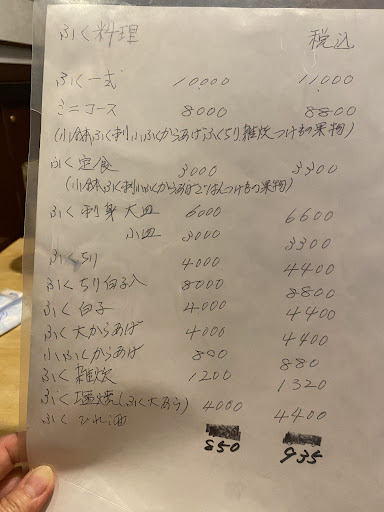 ふく料理 税込
ふく一式 10,000 11,000
ミニコース 8000 8800
(小鉢ふく刺小ふくからあげふくちり雑炊つけもの果物)
ふく定食 3000 3300
(小鉢ふく刺小ふくからあげごはんつけもの果物)
ふく刺身大皿 6000 6600
小皿 3000 3300
ふくちり 4000 4400
ふくちり白子入 8000 8800
ふく白子 4000 4400
ふく大からあげ 4000 4400
小ふくからあげ 800 880
ふく雑炊 1200 1320
ふく塩焼(ふく大あら) 4000 4400
ふくひれ酒 850 935